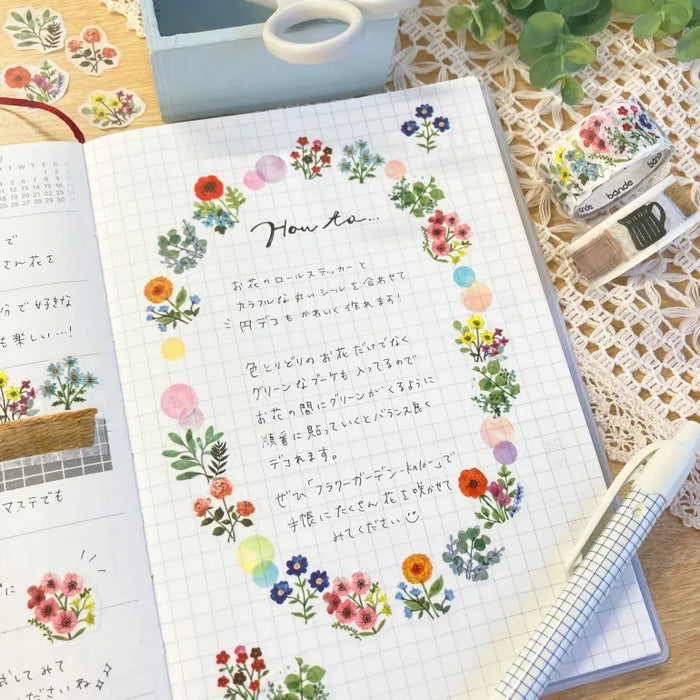 2
T W T F S
で
さん花を
分で好きな
も楽しい…!
マステでも
に
試してみて
ださいね
How to...
お花のロールステッカーと
カラフルな丸いシールを合わせて
円デコもかわいく作れます!
色とりどりのお花だけでなく
グリーンなブーケも入ってるので
お花の間にグリーンがくるように
順番に貼っていくとバランス良く
デコれます。
ぜひ「フラワーガーデン-kalo-」で
手帳にたくさん花を咲かせて
みてください
bande
bande